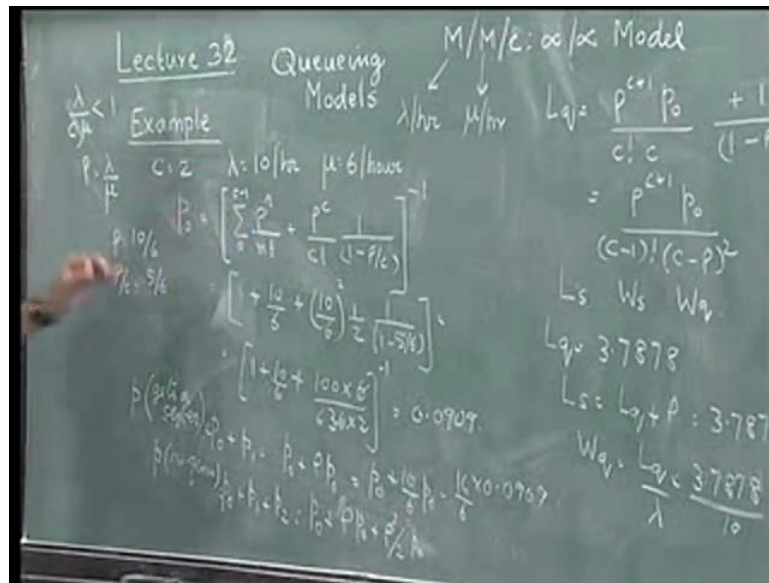 Lecture 32
Queueing Models
M/M/c: ∝/∝ Model
λ/hr μ/hr
λ/cμ < 1
Example
ρ = λ/μ
c = 2 λ = 10/hr μ = 6/hour
p₀ = [∑ ρⁿ/n! + ρᶜ/c! 1/(1-ρ/c)]⁻¹
ρ = 10/6
ρ/c = 5/6
= [1 + 10/6 + (10/6)² 1/2 1/(1-5/6)]
= [1 + 10/6 + 100×6/(36×2)]⁻¹ = 0.0909
p(getting service) p₀ + p₁ = p₀ + ρp₀ = p₀ + 10/6 p₀ = 16/6 × 0.0909
p₀ + p₁ + p₂ = p₀ + ρp₀ + ρ²/2 p₀
Lq = ρᶜ⁺¹ p₀ / c! c
+ 1
(1-ρ
= ρᶜ⁺¹ p₀ / (c-1)! (c-ρ)²
Ls Ws Wq
Lq = 3.7878
Ls = Lq + ρ = 3.787
Wq = Lq/λ = 3.7878/10